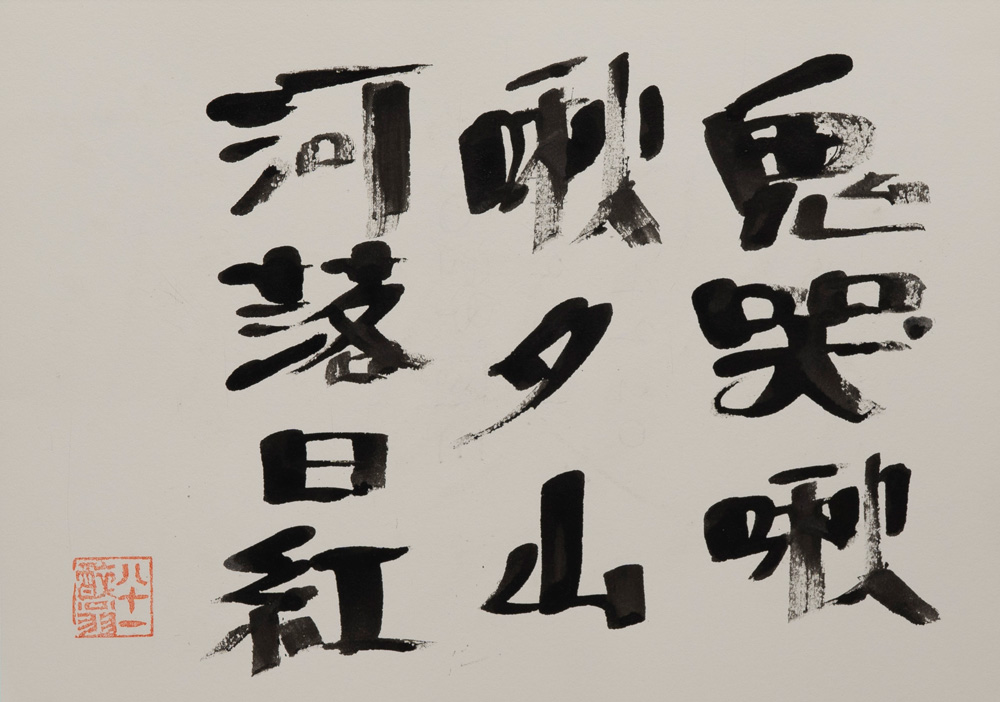 鬼哭啾
啾夕山
河落日紅
八十一